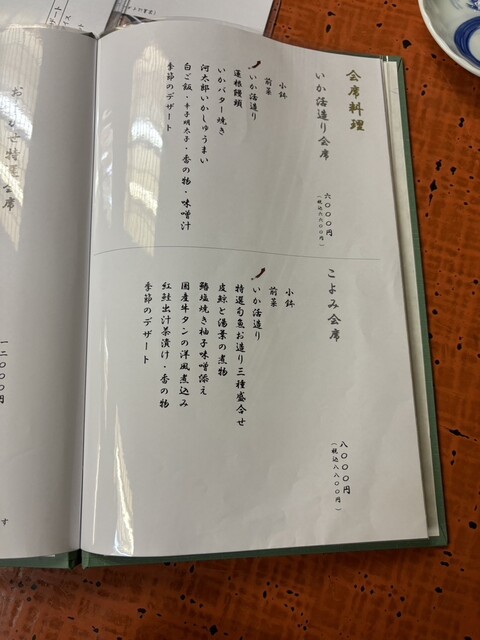 会席料理
いか活造り会席
六〇〇〇円
（税込六六〇〇円）
小鉢
前菜
いか活造り
蓮根饅頭
いかバター焼き
河太郎いかしゅうまい
白ご飯・辛子明太子・香の物・味噌汁
季節のデザート
こよみ会席
八〇〇〇円
（税込八八〇〇円）
小鉢
前菜
いか活造り
特選旬魚お造り三種盛合せ
皮鯨と湯葉の煮物
鰆塩焼き柚子味噌添え
国産牛タンの洋風煮込み
紅鮭出汁茶漬け・香の物
季節のデザート
一二〇〇〇円
す